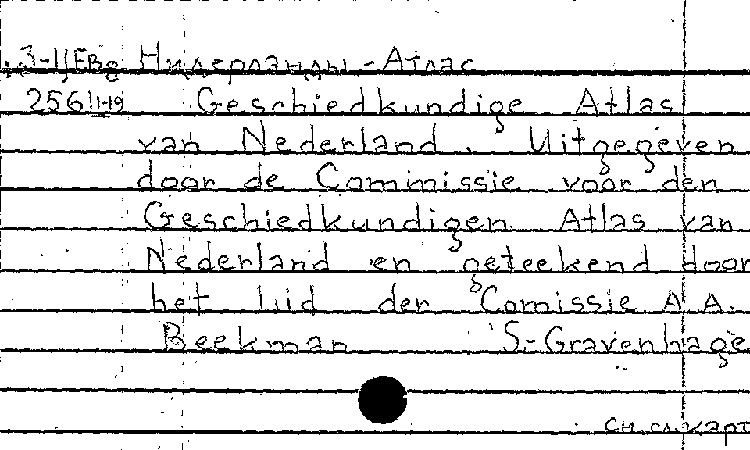 3-1|ЕВв Нидерланды - Атлас
256|1-19 Geschiedkundige Atlas
van Nederland. Uitgegeven
door de Commissie voor den
Geschiedkundigen Atlas van
Nederland en geteekend door
het lid der Comissie A.A.
Beekman 'S-Gravenhage
см. сл. карт